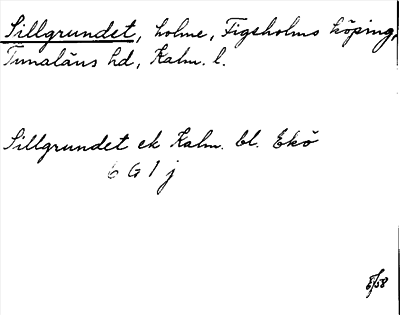 Sillgrundet, holme, Figeholms köping,
Tunaläns hd, Kalm. l.
Sillgrundet ek Kalm. bl. Ekö
6 G 1 j